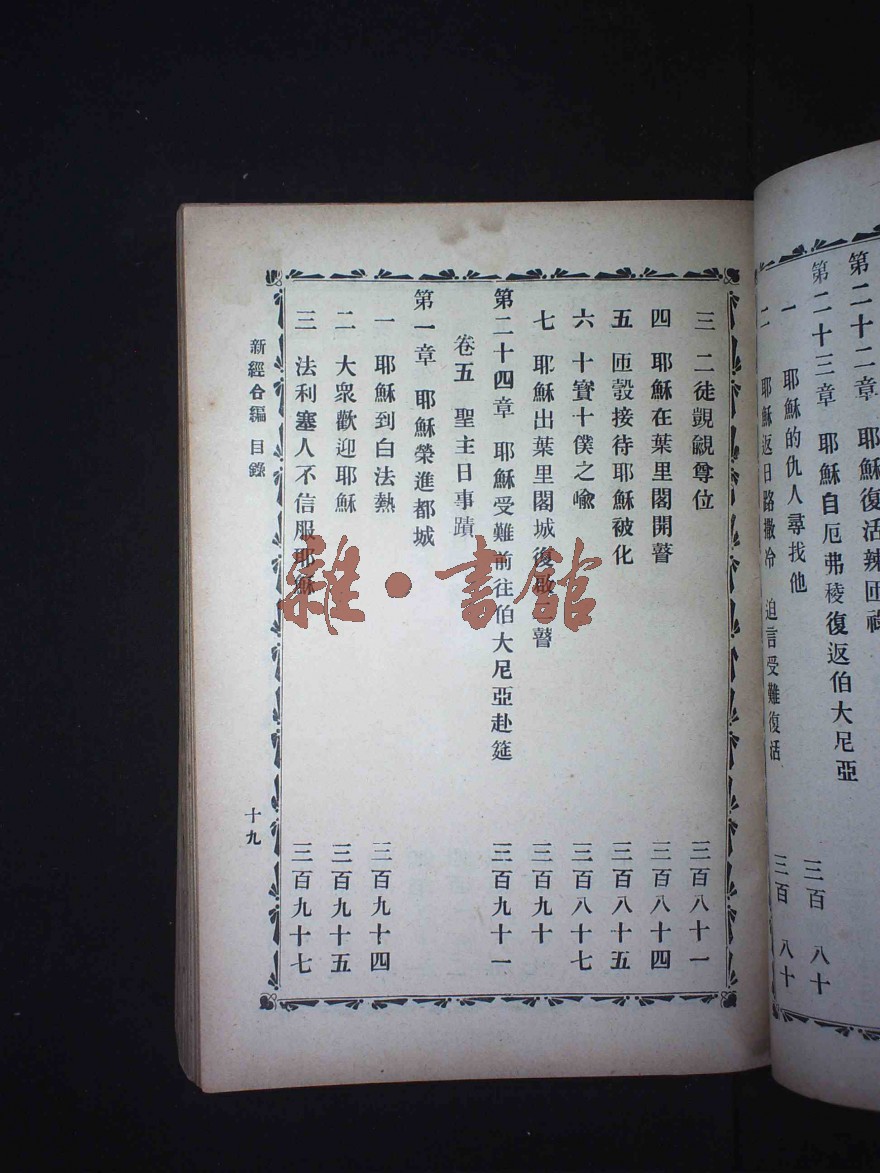 第二十二章 耶穌復活辣匝祿
第二十三章 耶穌自厄弗稜復返伯大尼亞 三百八十
一 耶穌的仇人尋找他
二 耶穌返日路撒冷 迫言受難復活 三百八十
三 二徒覬覦尊位 三百八十一
四 耶穌在葉里閣開瞽 三百八十四
五 匝嗀接待耶穌被化 三百八十五
六 十寶十僕之喩 三百八十七
七 耶穌出葉里閣城復啟瞽 三百九十
第二十四章 耶穌受難前往伯大尼亞赴筵 三百九十一
卷五 聖主日事蹟
第一章 耶穌榮進都城
一 耶穌到白法熱 三百九十四
二 大衆歡迎耶穌 三百九十五
三 法利塞人不信服耶穌 三百九十七
新經合編 目錄 十九
雜·書館